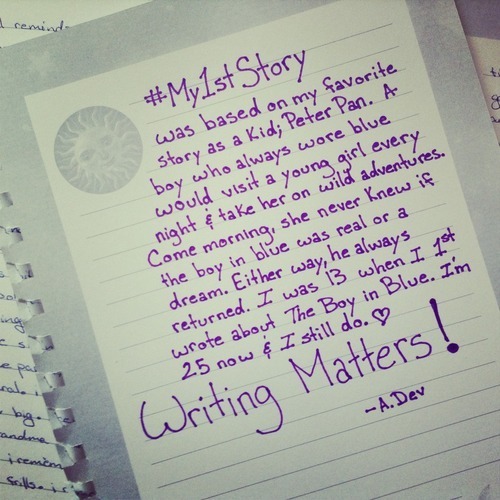 reminds
#My1stStory
was based on my favorite
story as a Kid; Peter Pan. A
boy who always wore blue
would visit a young girl every
night & take her on wild adventures.
Come morning, she never knew if
the boy in blue was real or a
dream. Either way, he always
returned. I was 13 when I 1st
wrote about The Boy in Blue. I'm
25 now & I still do. ♡
Writing Matters!
-A.Dev
big.